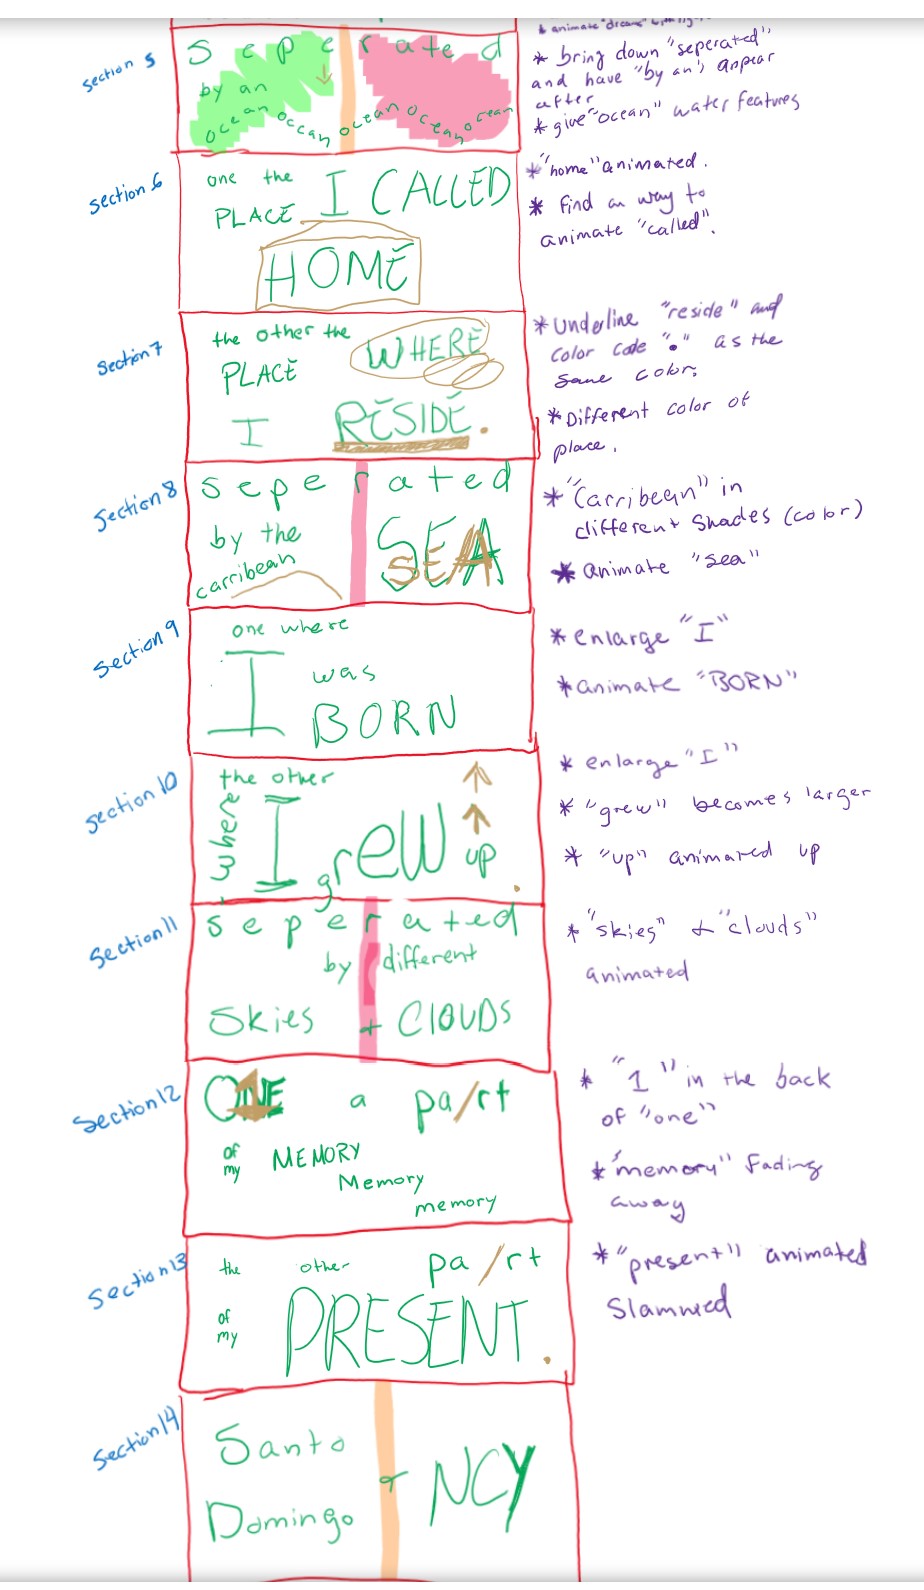 * animate "dreams"
section 5
seperated
by an
ocean occan ocean ocean ocean
* bring down "seperated"
and have "by an" appear
after
* give "ocean" water features
section 6
one the
PLACE I CALLED
HOME
* "home" animated.
* find an way to
animate "called".
Section 7
the other the
PLACE WHERE
I RESIDE.
* Underline "reside" and
color code "." as the
same color.
* Different color of
place.
Section 8
seperated
by the
carribean SEA
* "Carribean" in
different shades (color)
* animate "sea"
Section 9
one where
I was
BORN
* enlarge "I"
* animate "BORN"
section 10
the other
where I grew up.
* enlarge "I"
* "grew" becomes larger
* "up" animated up
Section 11
seperated
by different
Skies + ClOUDS
* "skies" & "clouds"
animated
Section 12
ONE a pa/rt
of my MEMORY
Memory
memory
* "1" in the back
of "one"
* "memory" Fading
away
Section 13
the other pa/rt
of my PRESENT.
* "present" animated
Slammed
Section 14
Santo
Domingo + NCY